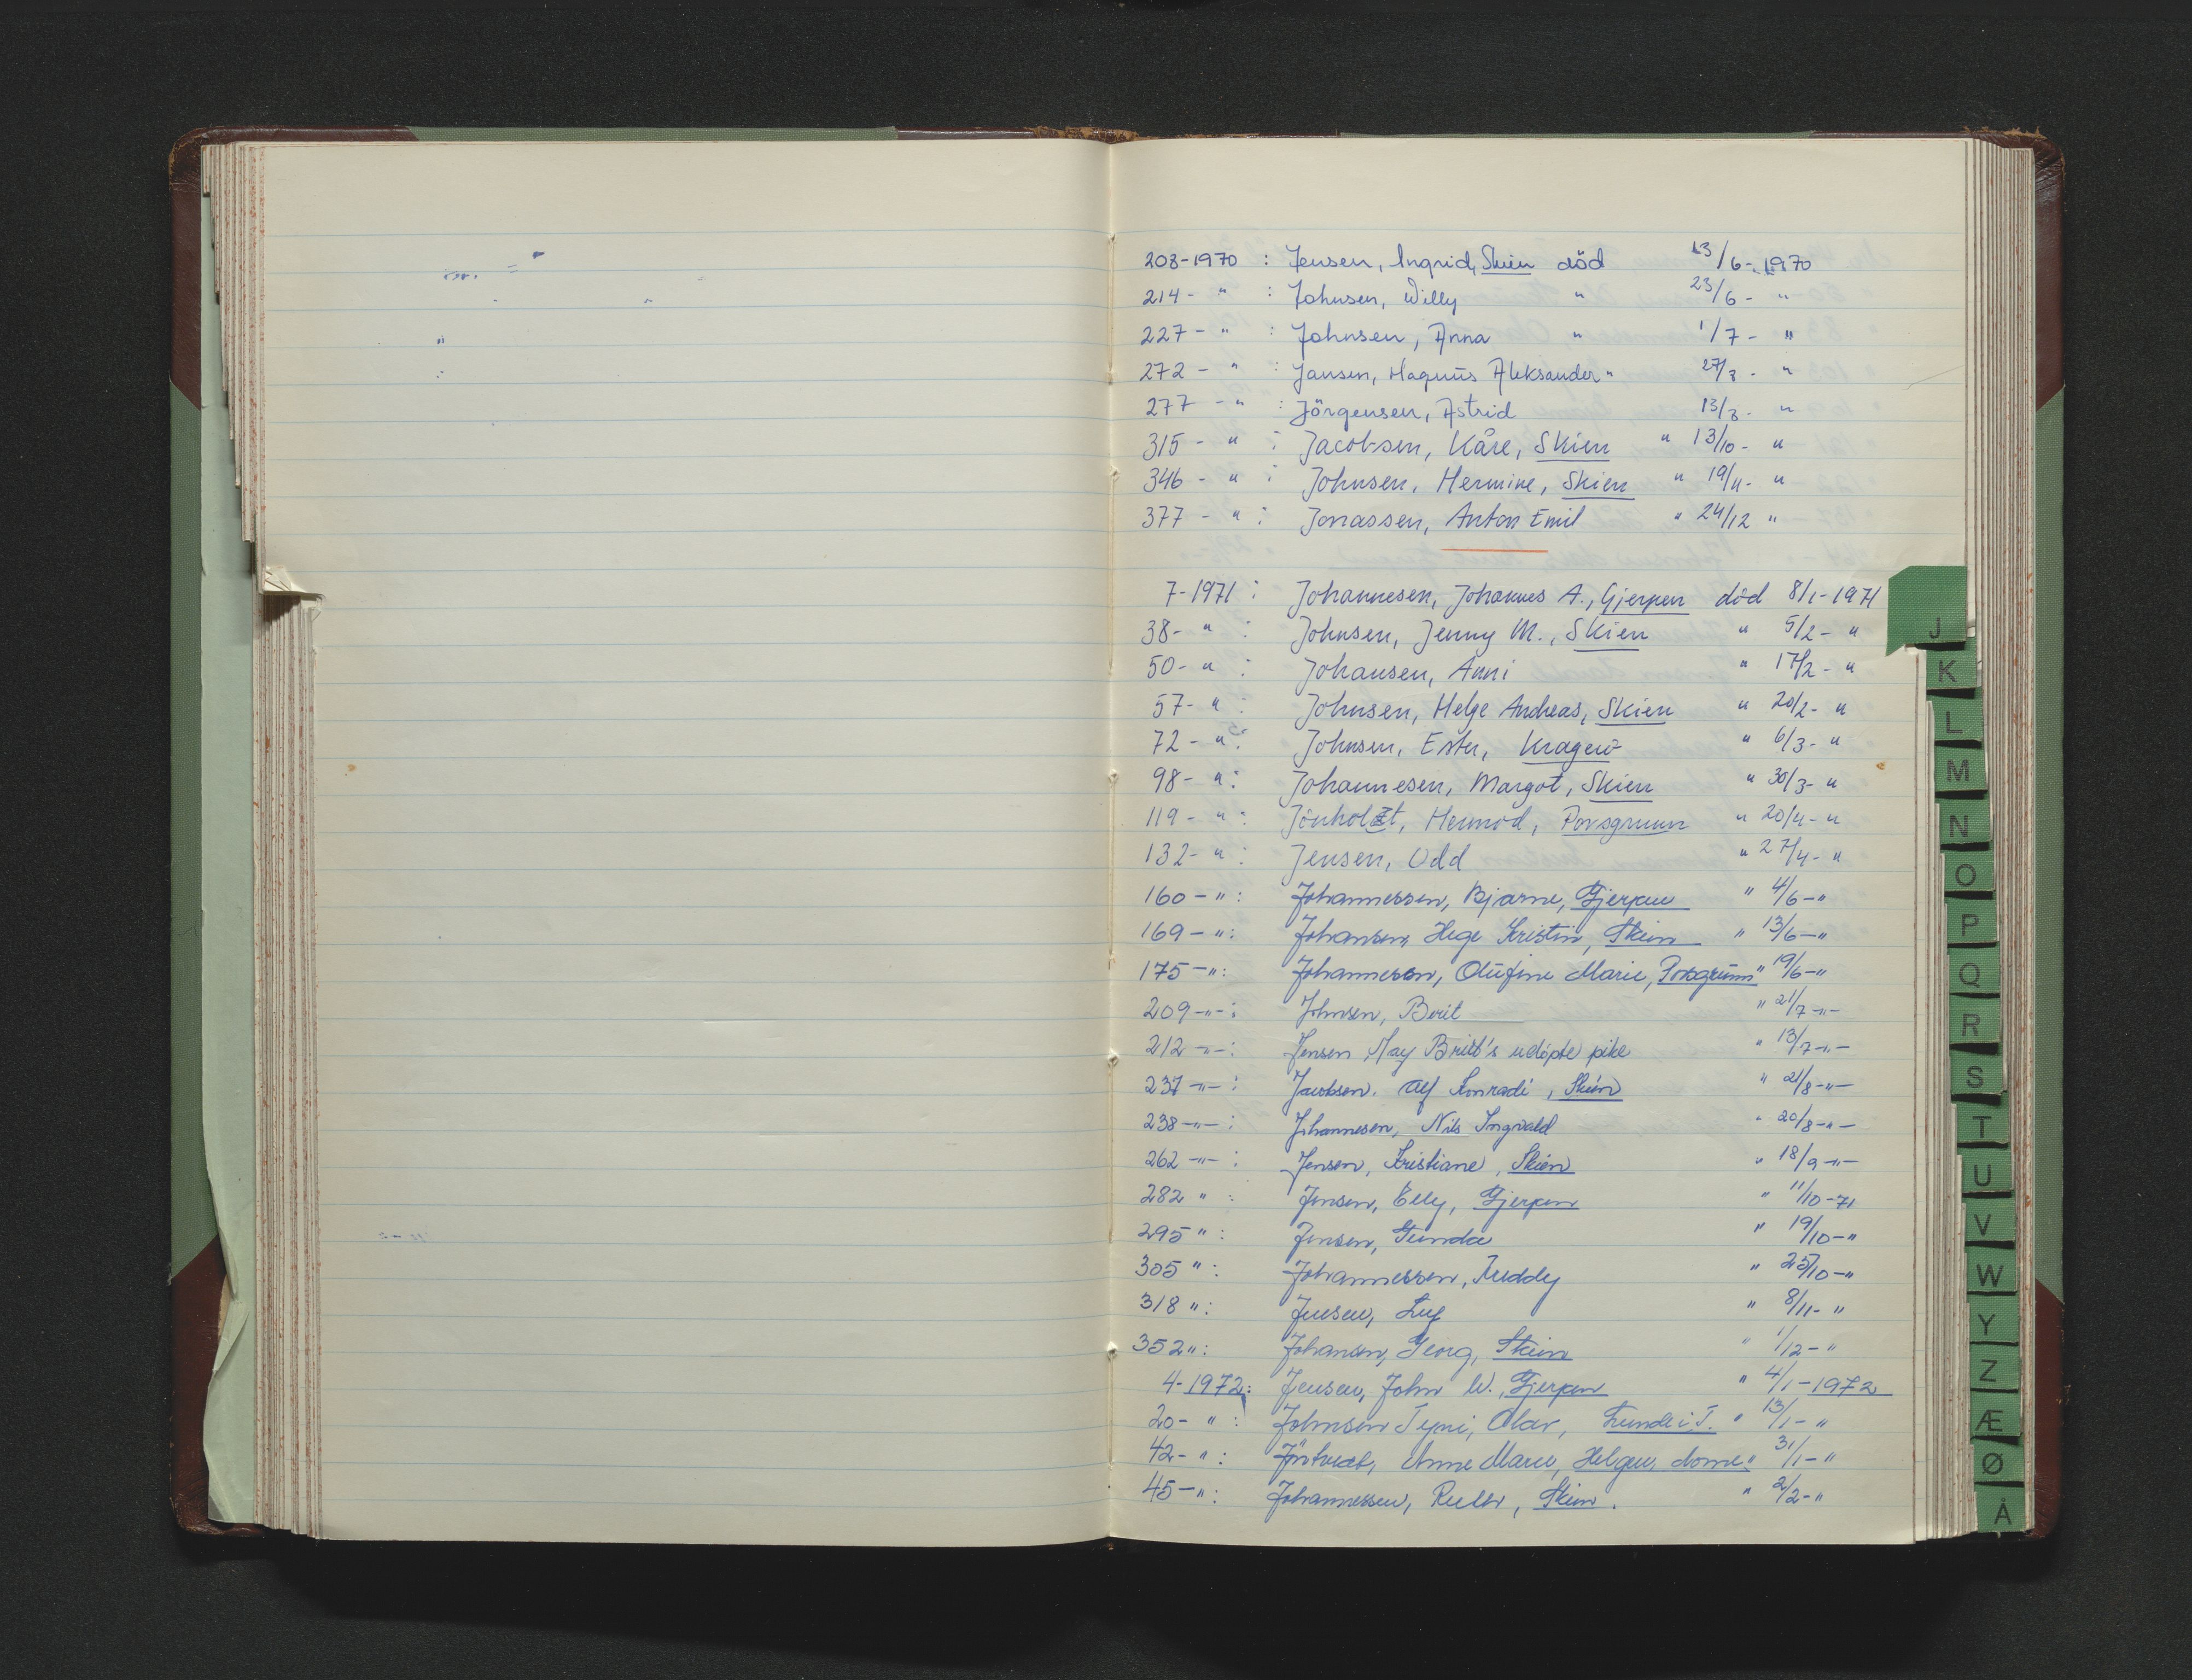 203-1970 : Jensen, Ingrid, Skien död 13/6-1970
214- " : Johnsen, Willy " 23/6- "
227- " : Johnsen, Anna " 1/7- "
272- " : Jansen, Magnus Aleksander " 27/8- "
277- " : Jörgensen, Astrid 13/8- "
315- " : Jacobsen, Kåre, Skien " 13/10- "
346- " : Johnsen, Hermine, Skien " 19/11- "
377- " : Jonassen, Anton Emil " 24/12 "
7-1971 : Johannesen, Johannes A., Gjerpen död 8/1-1971
38- " : Johnsen, Jenny M., Skien " 5/2- "
50- " : Johansen, Anni " 17/2- "
57- " : Johnsen, Helge Andreas, Skien " 20/2- "
72- " : Johnsen, Ester, Kragerø " 6/3- "
98- " : Johannesen, Margot, Skien " 30/3- "
119- " : Jönholt, Hermod, Porsgrunn " 20/4- "
132- " : Jensen, Odd " 27/4- "
160- " : Johannessen, Bjarne, Gjerpen " 4/6- "
169- " : Johansen, Hege Kristin, Skien " 13/6- "
175- " : Johannesen, Olufine Marie, Porsgrunn " 19/6- "
209-"- : Johnsen, Berit " 21/7-"-
212-"- : Jensen May Britt's udöpte pike " 13/7-"-
237-"- : Jacobsen, Alf Konradi, Skien " 21/8-"-
238-"- : Johannesen, Nils Ingvald " 20/8-"-
262-"- : Jensen, Kristiane, Skien " 18/9-"-
282 " : Jensen, Elly, Gjerpen " 11/10-71
295 " : Jensen, Gunda " 19/10- "
305 " : Johannessen, Ruddy " 25/10- "
318 " : Jensen, " 8/11- "
352 " : Johansen, Georg, Skien " 1/12- "
4-1972 : Jensen, John W., Gjerpen " 4/1-1972
20- " : Johnsen Olav, Lunde i T. " 13/1- "
42- " : Anne Marie, Helgen, " 31/1- "
45- " : Johannessen, Skien. " 2/2- "
J
K
L
M
N
O
P
Q
R
S
T
U
V
W
Y
Z
Æ
Ø
Å